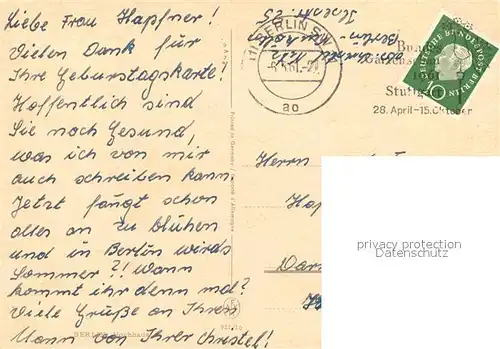 Liebe Frau Hapfner!
Vielen Dank für
Ihre Geburstagskarte!
Hoffentlich sind
Sie noch Gesund,
was ich von mir
auch schreiben kann.
Jetzt fängt schon
alles an zu blühen
und in Berlin wirds
Sommer?! Wann
kommt ihr denn mal?
Viele Grüße an Ihren
Mann von Ihrer Christel!
BERLIN
BERLIN SW
61.-2
ao
Berlin-
Bu
Gartenschau
1961
Stuttgart
28. April-15. Oktober
DEUTSCHE BUNDESPOST BERLIN
10
Herrn
Ha
Dar
privacy protection
Datenschutz